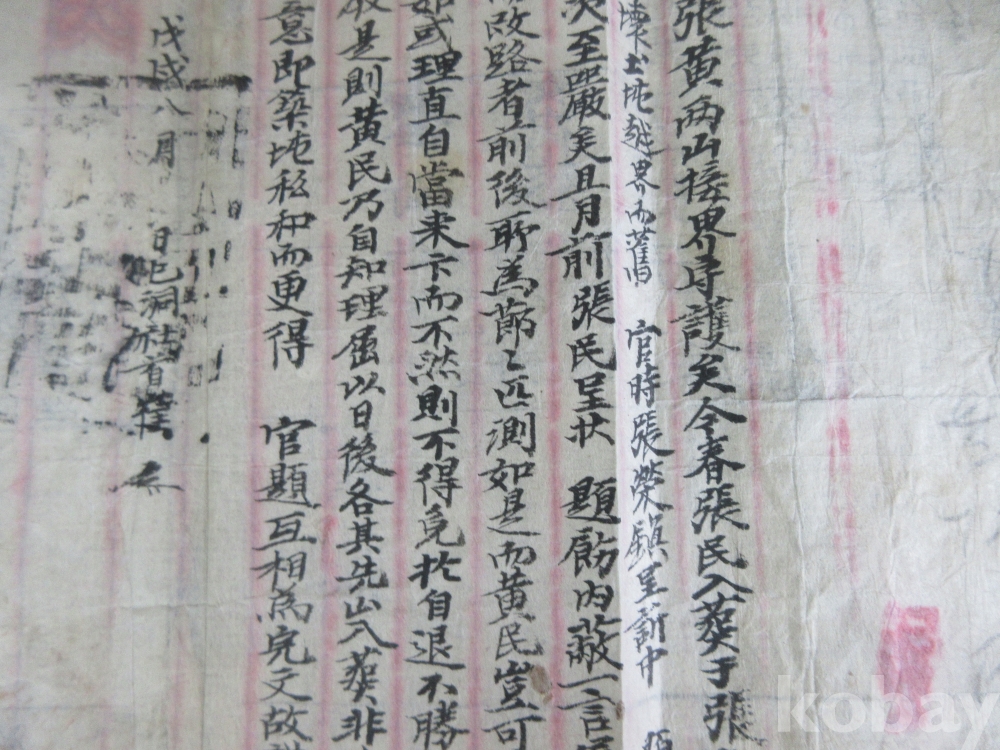 張黃兩山接界守護矣今春張民入葬于張
越界而舊 官時張榮鎮呈訴中
至嚴矣且月前張民呈狀 題飭內蔽一言
改路者前後所爲節〻叵測如是而黃民豈可
如或理直自當來卞而不然則不得見於自退不勝
是則黃民乃自知理屈以日後各其先山入葬非
意即築地私和而更得 官題互相爲完文故
戊戌八月 日巴洞社首
kobay